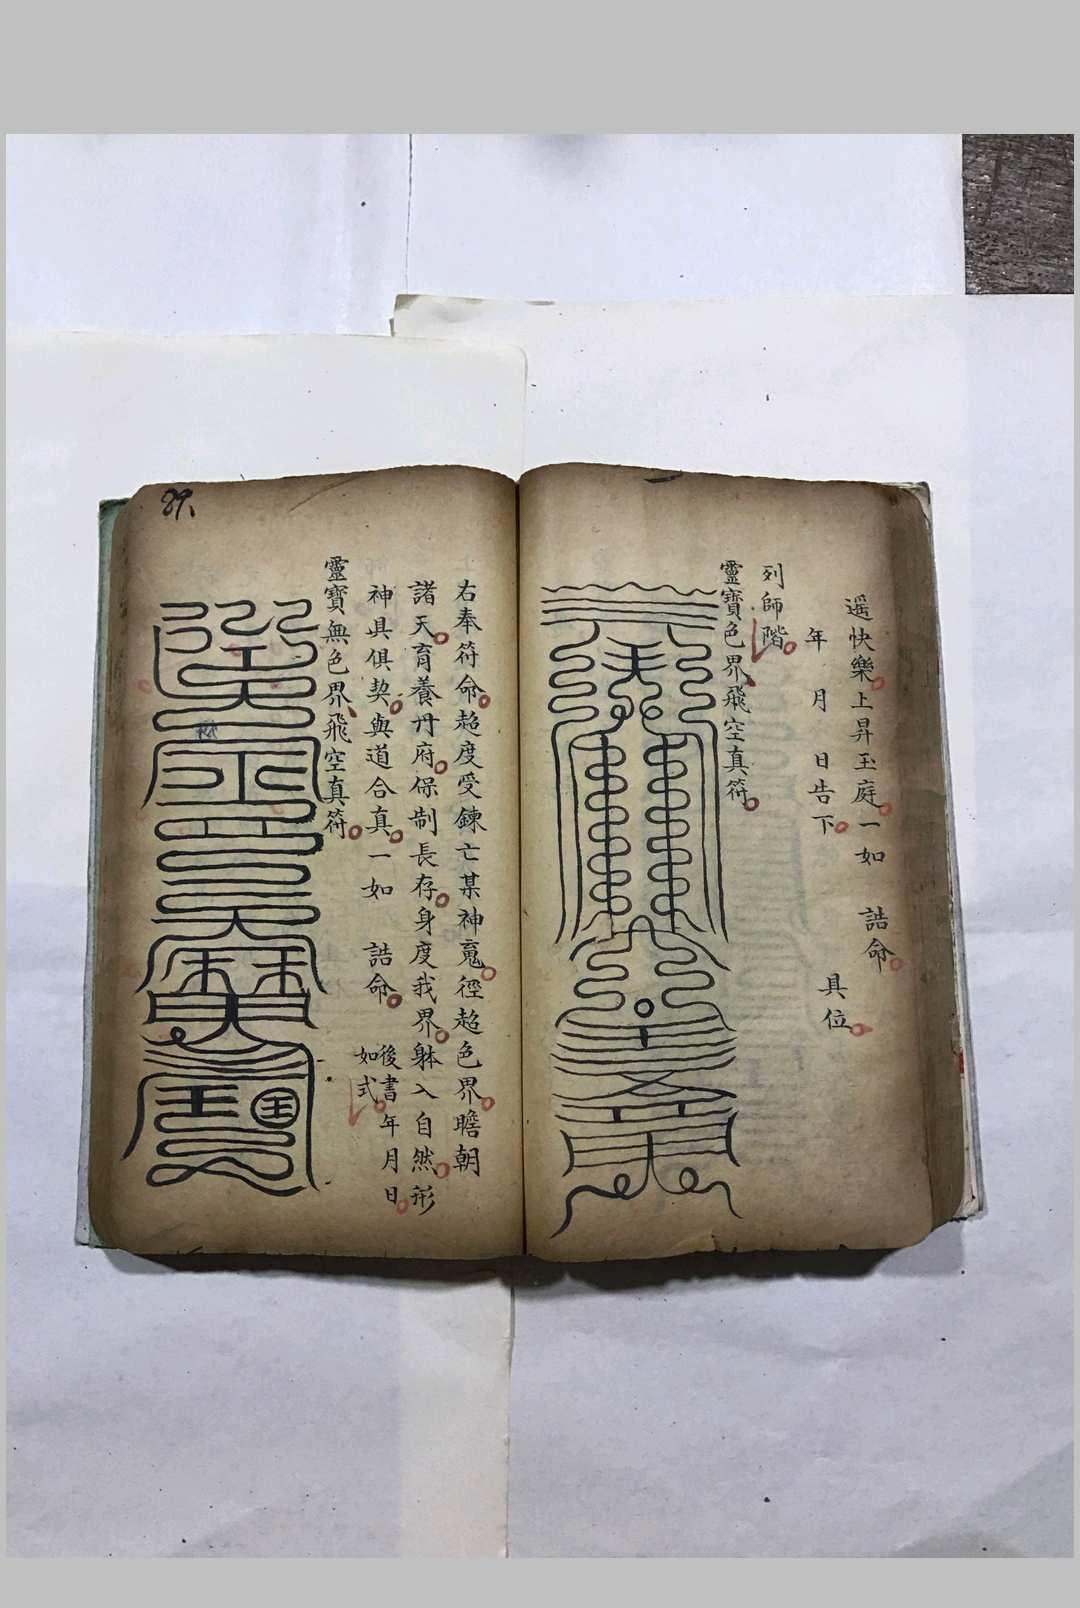 遥快樂上昇玉庭一如　誥命
年　月　日告下
具位
列師階
靈寶色界飛空真符
右奉符命超度受鍊亡某神魂徑超色界瞻朝
諸天育養丹府保制長存身度我界躰入自然形
神具俱契與道合真一如　誥命
後書年月日
如式
靈寶無色界飛空真符
89.